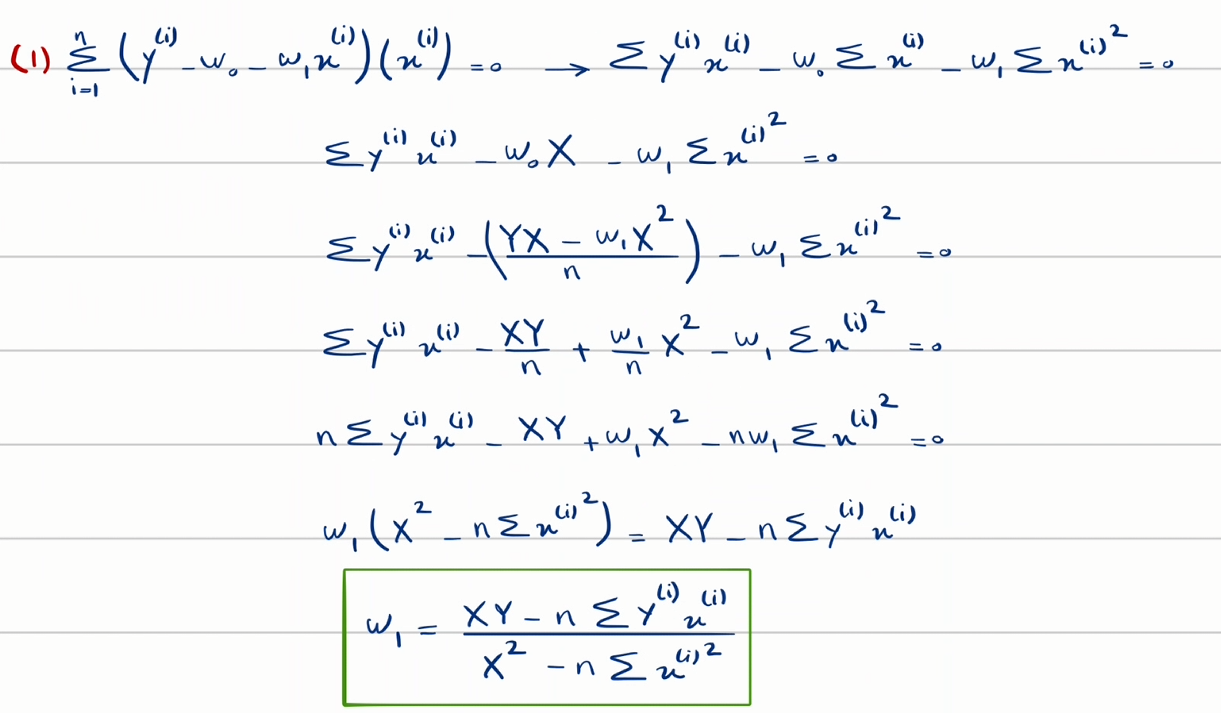 (1) $\sum_{i=1}^{n} (y^{(i)} - w_0 - w_1 x^{(i)})(x^{(i)}) = 0 \rightarrow \sum y^{(i)} x^{(i)} - w_0 \sum x^{(i)} - w_1 \sum x^{(i)^2} = 0$
$\sum y^{(i)} x^{(i)} - w_0 X - w_1 \sum x^{(i)^2} = 0$
$\sum y^{(i)} x^{(i)} - \left(\frac{YX - w_1 X^2}{n}\right) - w_1 \sum x^{(i)^2} = 0$
$\sum y^{(i)} x^{(i)} - \frac{XY}{n} + \frac{w_1}{n} X^2 - w_1 \sum x^{(i)^2} = 0$
$n \sum y^{(i)} x^{(i)} - XY + w_1 X^2 - n w_1 \sum x^{(i)^2} = 0$
$w_1 (X^2 - n \sum x^{(i)^2}) = XY - n \sum y^{(i)} x^{(i)}$
$w_1 = \frac{XY - n \sum y^{(i)} x^{(i)}}{X^2 - n \sum x^{(i)^2}}$